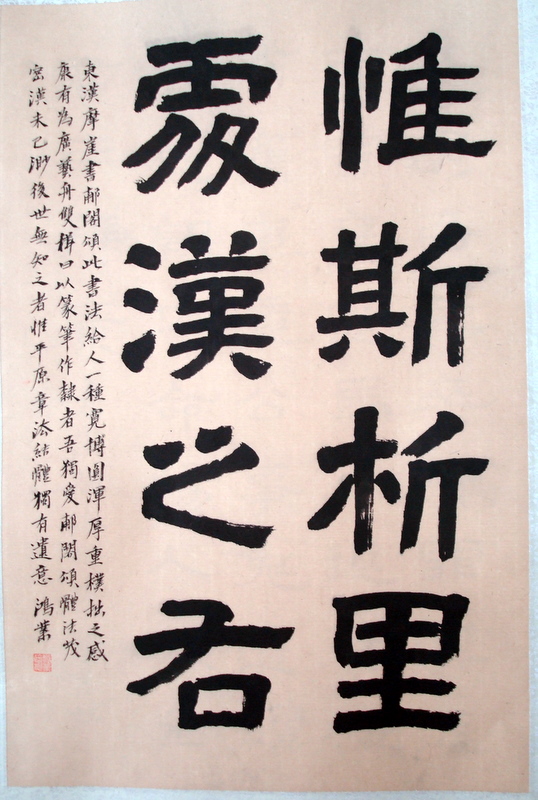 惟斯析里
處漢之右
東漢摩崖書郙閣頌此書法給人一種寬博圓渾厚重樸拙之感
康有為廣藝舟雙楫曰以篆筆作隸者吾獨愛郙閣頌體法茂
密漢末已渺後世無知之者惟平原章法結體獨有遺意 鴻業